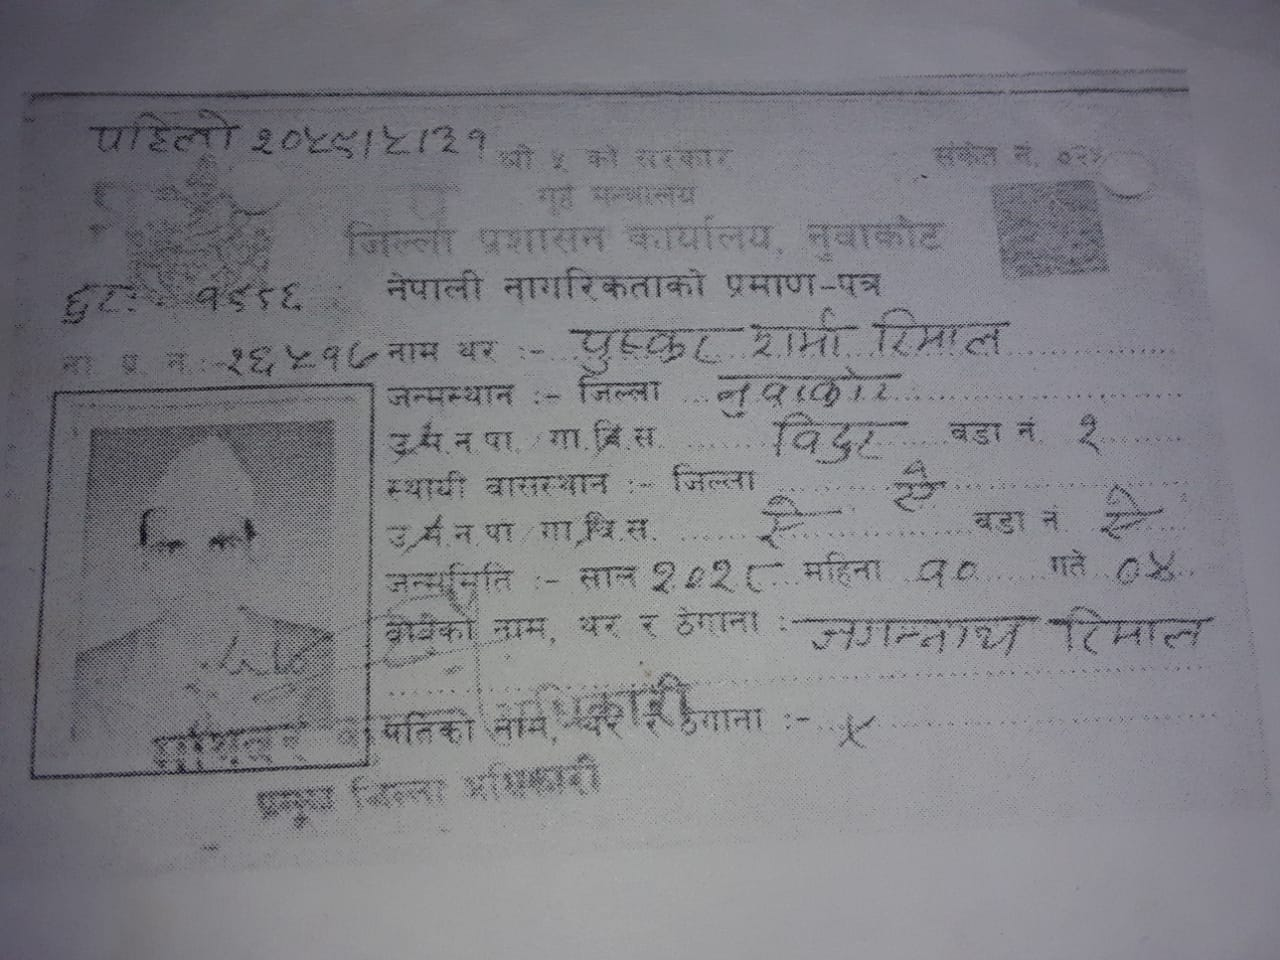 पहिलो २०४९।५।३१
श्री ५ को सरकार
संकेत नं. ०२५
गृह मन्त्रालय
जिल्ला प्रशासन कार्यालय, नुवाकोट
नेपाली नागरिकताको प्रमाण-पत्र
ना प्र नं. २६५१७
नाम थर :- पुस्कर शर्मा रिमाल
जन्मस्थान :- जिल्ला नुवाकोट
उ.म.न.पा. / गा.वि.स. विदुर वडा नं. १
स्थायी वासस्थान :- जिल्ला ऐ
उ.म.न.पा / गा.वि.स. ऐ वडा नं. ऐ
जन्ममिति :- साल २०२८ महिना १० गते ०४
बाबुको नाम, थर र ठेगाना :- जगन्नाथ रिमाल
पतिको नाम, थर र ठेगाना :- ×
अधिकारी
प्रमुख जिल्ला अधिकारी